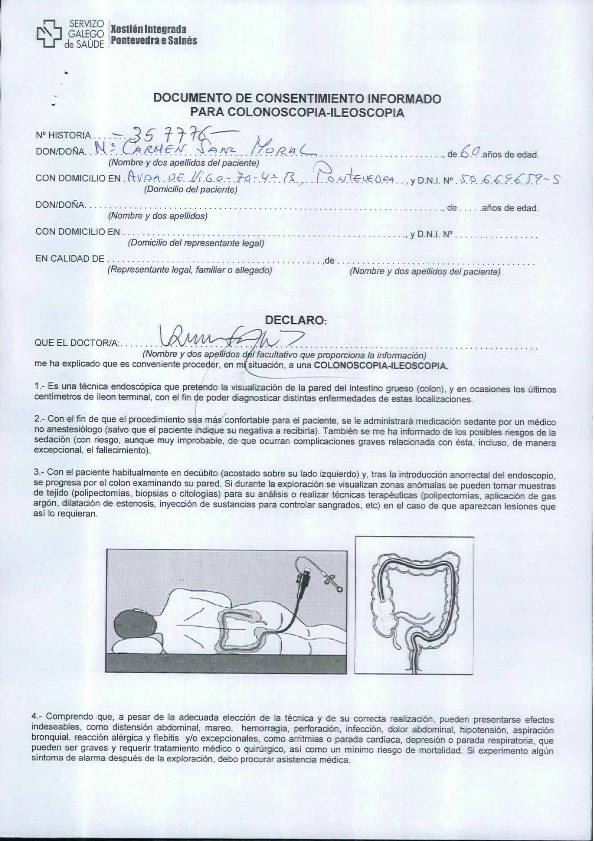 SERVIZO
GALEGO
de SAÚDE
Xestión Integrada
Pontevedra e Salnés
DOCUMENTO DE CONSENTIMIENTO INFORMADO
PARA COLONOSCOPIA-ILEOSCOPIA
Nº HISTORIA - 357776 -
DON/DOÑA. Mª CARMEN SANZ MORAL, de 60 años de edad.
(Nombre y dos apellidos del paciente)
CON DOMICILIO EN AVDA. DE VIGO - 70-4-B, PONTEVEDRA, y D.N.I. Nº 50.669659-S
(Domicilio del paciente)
DON/DOÑA, de años de edad.
(Nombre y dos apellidos)
CON DOMICILIO EN, y D.N.I. Nº
(Domicilio del representante legal)
EN CALIDAD DE, de
(Representante legal, familiar o allegado) (Nombre y dos apellidos del paciente)
DECLARO:
QUE EL DOCTOR/A:
(Nombre y dos apellidos del facultativo que proporciona la información)
me ha explicado que es conveniente proceder, en mi situación, a una COLONOSCOPIA-ILEOSCOPIA.
1.- Es una técnica endoscópica que pretendo la visualización de la pared del intestino grueso (colon), y en ocasiones los últimos
centímetros de íleon terminal, con el fin de poder diagnosticar distintas enfermedades de estas localizaciones.
2.- Con el fin de que el procedimiento sea más confortable para el paciente, se le administrará medicación sedante por un médico
no anestesiólogo (salvo que el paciente indique su negativa a recibirla). También se me ha informado de los posibles riesgos de la
sedación (con riesgo, aunque muy improbable, de que ocurran complicaciones graves relacionada con ésta, incluso, de manera
excepcional, el fallecimiento).
3.- Con el paciente habitualmente en decúbito (acostado sobre su lado izquierdo) y, tras la introducción anorrectal del endoscopio,
se progresa por el colon examinando su pared. Si durante la exploración se visualizan zonas anómalas se pueden tomar muestras
de tejido (polipectomías, biopsias o citologías) para su análisis o realizar técnicas terapéuticas (polipectomías, aplicación de gas
argón, dilatación de estenosis, inyección de sustancias para controlar sangrados, etc) en el caso de que aparezcan lesiones que
así lo requieran.
4.- Comprendo que, a pesar de la adecuada elección de la técnica y de su correcta realización, pueden presentarse efectos
indeseables, como distensión abdominal, mareo, hemorragia, perforación, infección, dolor abdominal, hipotensión, aspiración
bronquial, reacción alérgica y flebitis y/o excepcionales, como arritmias o parada cardiaca, depresión o parada respiratoria, que
pueden ser graves y requerir tratamiento médico o quirúrgico, así como un mínimo riesgo de mortalidad. Si experimento algún
síntoma de alarma después de la exploración, debo procurar asistencia médica.